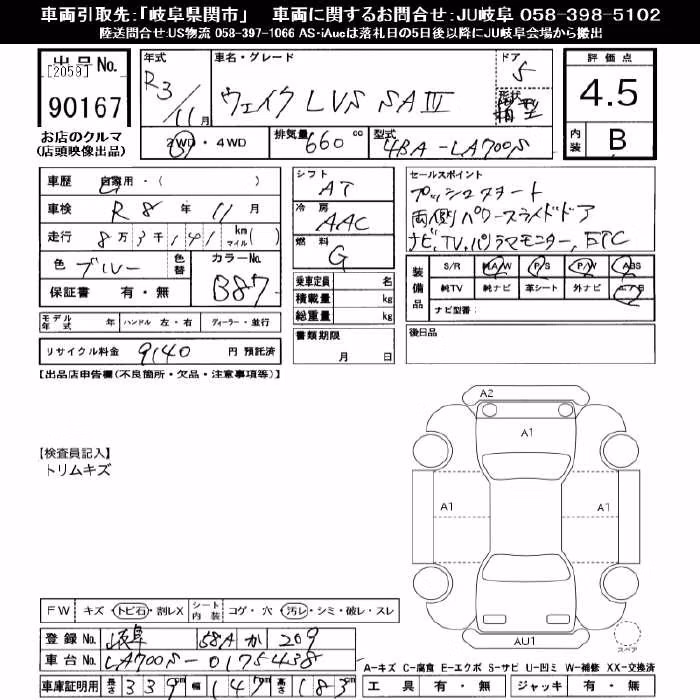 車両引取先:「岐阜県関市」 車両に関するお問合せ:JU岐阜 058-398-5102
陸送問合せ:US物流 058-397-1066 AS・iAucは落札日の5日後以降にJU岐阜会場から搬出
出品No. [2059] 90167
お店のクルマ
(店頭映像出品)
年式 R3/11月
車名・グレード ウェイク LVS SAⅣ
ドア 5
形状 箱型
2WD・4WD
排気量 660cc
型式 4BA-LA700S
評価点 4.5
内装 B
車歴 自家用・( )
車検 R8年11月
走行 8万3千141 km マイル( )
色 ブルー 色替 カラーNo. B87
保証書 有・無
モデル年式 年 ハンドル 左・右 ディーラー・並行
リサイクル料金 9140 円 預託済
シフト AT
冷房 AAC
燃料 G
乗車定員 名
積載量 kg
総重量 kg
書類期限 月 日
セールスポイント
プッシュスタート
両側パワースライドドア
ナビ,TV,パノラマモニター,ETC
装備品 S/R 純A/W P/S P/W ABS
純TV 純ナビ 革シート 外ナビ エアB
ナビ型番:
後日品
【出品店申告欄(不良箇所・欠品・注意事項等)】
【検査員記入】
トリムキズ
A2
A1
A1 A1
AU1
スペア
FW キズ・トビ石・割レX シート内装 コゲ・穴・汚レ・シミ・破レ・スレ
登録No. 岐阜 58A か 209
車台No. LA700S-0175438
車庫証明用 長さ 339cm 幅 147cm 高さ 183cm
A-キズ C-腐食 E-エクボ S-サビ U-凹ミ W-補修 XX-交換済
工具 有・無 ジャッキ 有・無